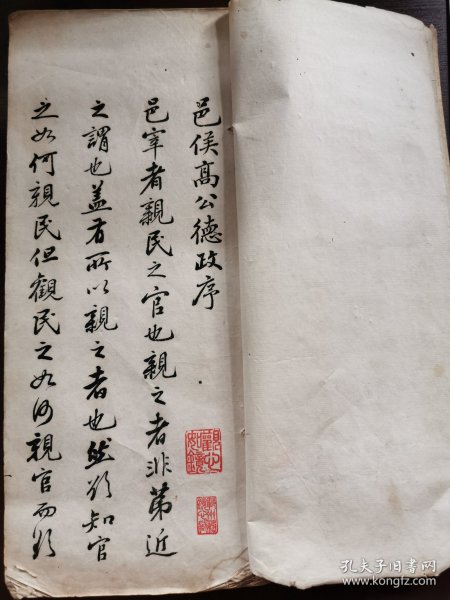 邑侯高公德政序
邑宰者親民之官也親之者非第近
之謂也盖有所以親之者也然欲知官
之如何親民但觀民之如何親官而欲
孔夫子旧书网
www.kongfz.com